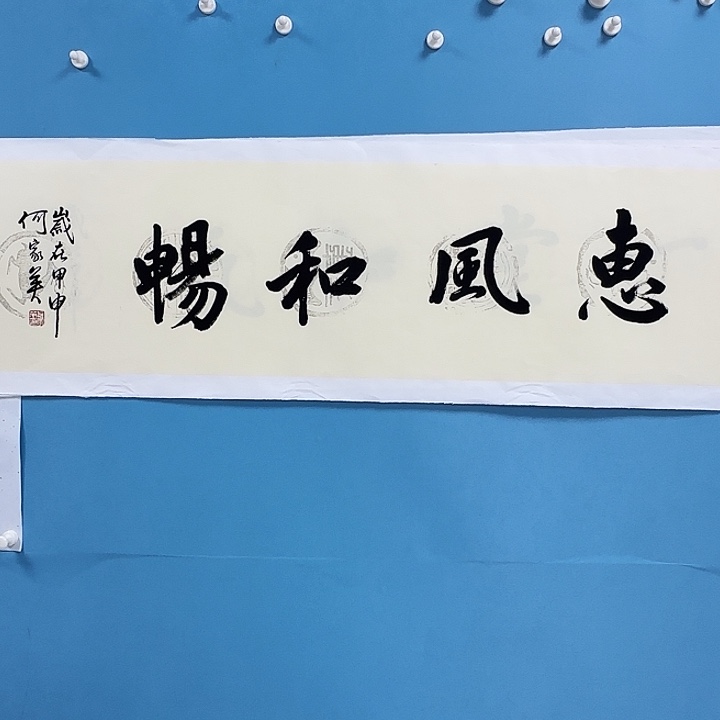 惠風和暢
歲在甲申
何家英